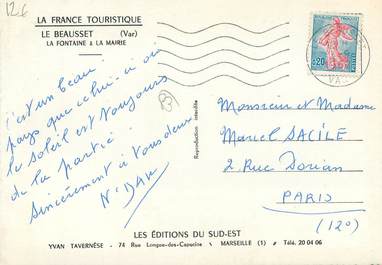 12€
LA FRANCE TOURISTIQUE
LE BEAUSSET (Var)
LA FONTAINE & LA MAIRIE
c'est un beau
pays que celui-ci où
le soleil est toujours
de la partie.
Sincèrement à vous deux
Reproduction interdite
0,20
VAR
Monsieur et Madame
Marcel SACILE
2 Rue Dorian
PARIS
(12°)
LES ÉDITIONS DU SUD-EST
YVAN TAVERNÈSE - 74 Rue Longue-des-Capucins - MARSEILLE (1) - Télé. 20 04 06